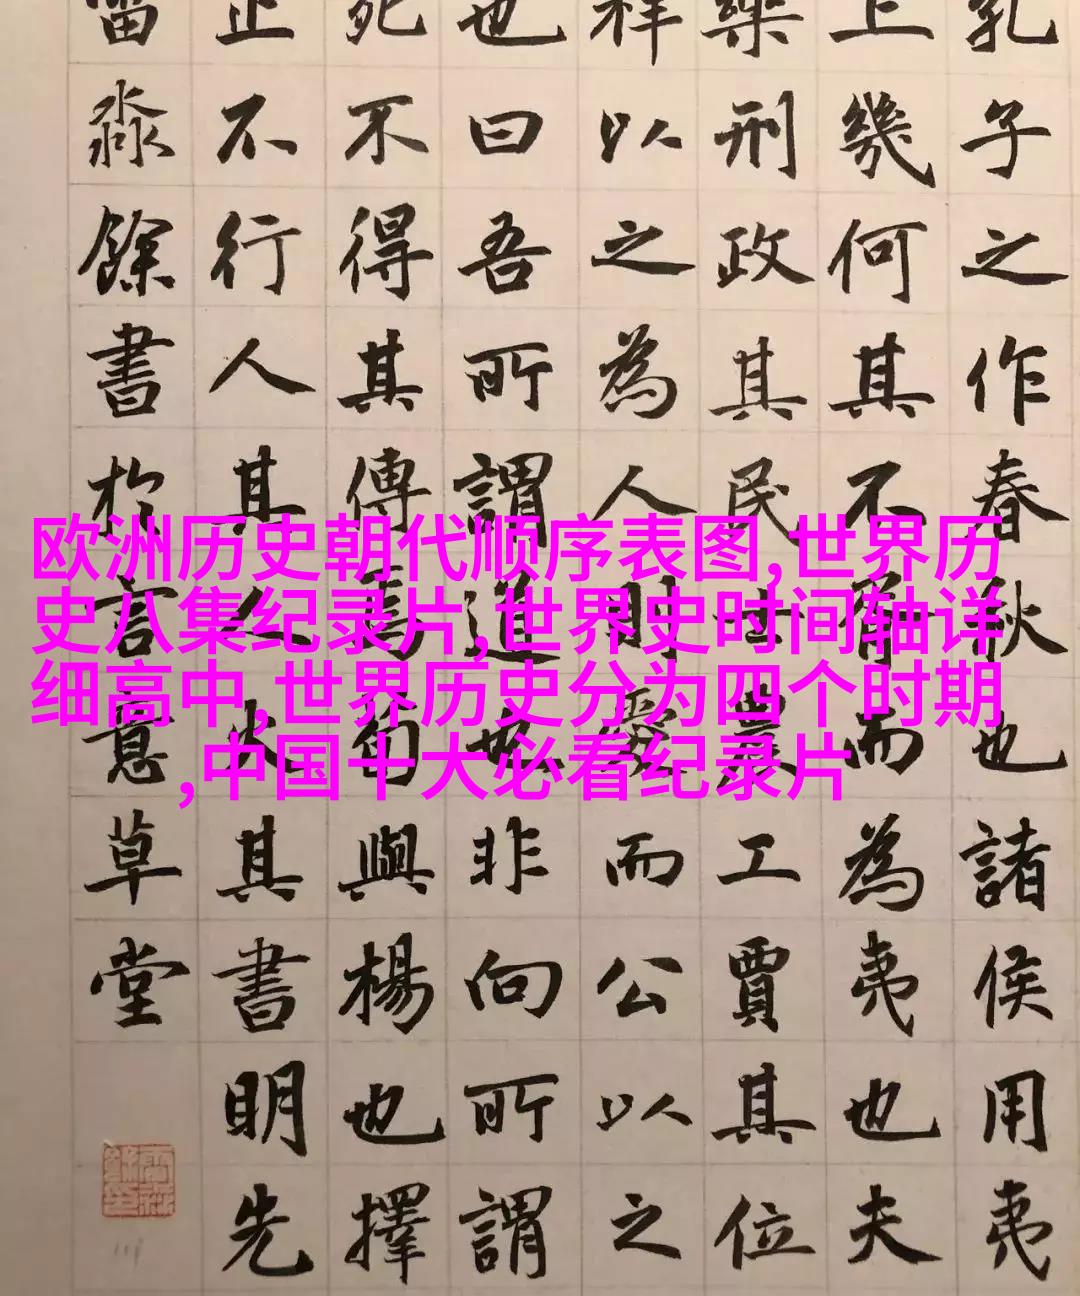 孔子之作春秋也諸侯用夷
上幾何其不胥而為夷也夫
樂刑政其民士農工賈其位
祥以之為人則愛而公以之
也曰吾所謂道也非向所謂
死不得其傳焉荀與楊也擇
止不行人其人火其書明先
淼餘書於言意草堂
欧洲历史朝代顺序表图,世界历
史八集纪录片,世界史时间轴详
细高中,世界历史分为四个时期
,中国十大必看纪录片